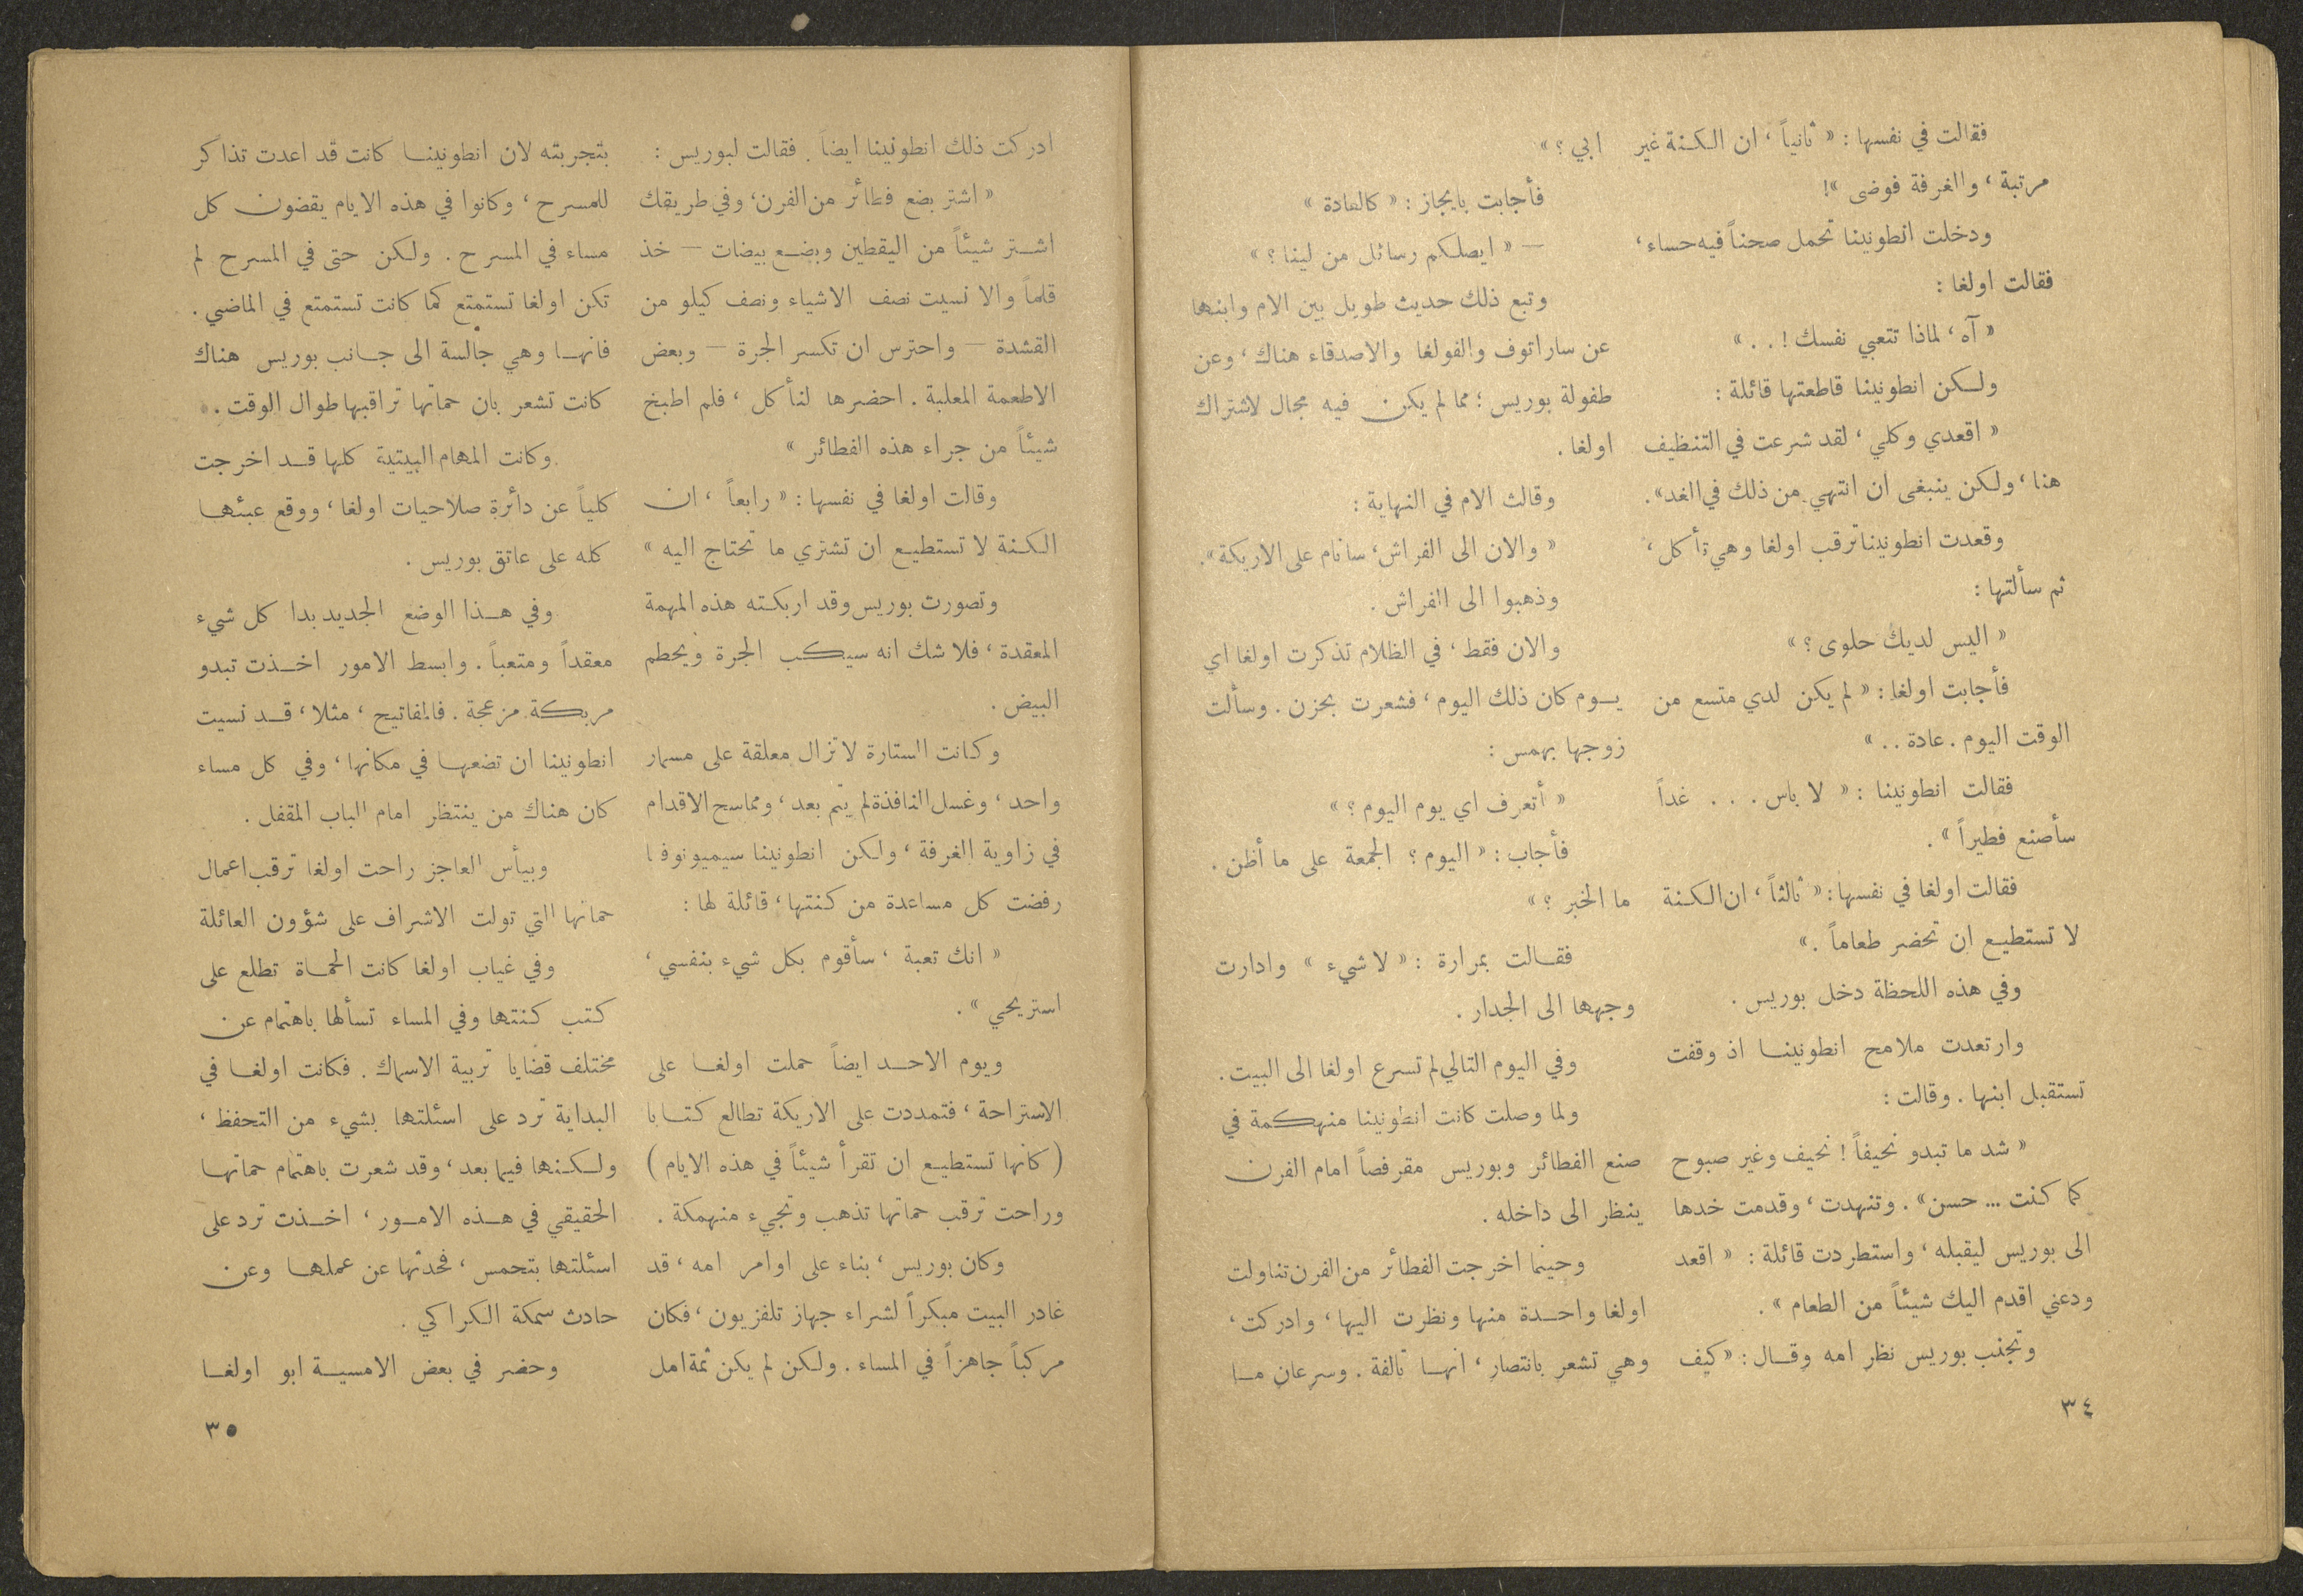 فقالت في نفسها : « ثانياً ، ان الكنة غير
مرتبة ، والغرفة فوضى »!
ودخلت انطونينا تحمل صحناً فيه حساء ،
فقالت اولغا :
« آه ، لماذا تتعبي نفسك ! . . »
ولكن انطونينا قاطعتها قائلة :
« اقعدي وكلي ، لقد شرعت في التنظيف
هنا ، ولكن ينبغى ان انتهي من ذلك في الغد ».
وقعدت انطونينا ترقب اولغا وهي تأكل ،
ثم سألتها :
« اليس لديك حلوى ؟ »
فأجابت اولغا : « لم يكن لدي متسع من
الوقت اليوم . عادة . . »
فقالت انطونينا : « لا باس . . . غداً
سأصنع فطيراً » .
فقالت اولغا في نفسها : « ثالثاً ، ان الكنة
لا تستطيع ان تحضر طعاماً . »
وفي هذه اللحظة دخل بوريس .
وارتعدت ملامح انطونينا اذ وقفت
تستقبل ابنها . وقالت :
« شد ما تبدو نحيفاً ! نحيف وغير صبوح
كما كنت ... حسن » . وتنهدت ، وقدمت خدها
الى بوريس ليقبله ، واستطردت قائلة : « اقعد
ودعني اقدم اليك شيئاً من الطعام » .
وتجنب بوريس نظر امه وقال : « كيف
ابي ؟ »
فأجابت بايجاز : « كالعادة »
— « ايصلكم رسائل من لينا ؟ »
وتبع ذلك حديث طويل بين الام وابنها
عن ساراتوف والفولغا والاصدقاء هناك ، وعن
طفولة بوريس ؛ مما لم يكن فيه مجال لاشتراك
اولغا .
وقالت الام في النهاية :
« والان الى الفراش ، سانام على الاريكة ».
وذهبوا الى الفراش .
والان فقط ، في الظلام تذكرت اولغا اي
يوم كان ذلك اليوم ، فشعرت بحزن . وسألت
زوجها بهمس :
« أتعرف اي يوم اليوم ؟ »
فأجاب : « اليوم ؟ الجمعة على ما أظن .
ما الخبر ؟ »
فقالت بمرارة : « لا شيء » وادارت
وجهها الى الجدار .
وفي اليوم التالي لم تسرع اولغا الى البيت .
ولما وصلت كانت انطونينا منهكمة في
صنع الفطائر وبوريس مقرفصاً امام الفرن
ينظر الى داخله .
وحينما اخرجت الفطائر من الفرن تناولت
اولغا واحدة منها ونظرت اليها ، وادركت ،
وهي تشعر بانتصار ، انها تالفة . وسرعان ما
٣٤
ادركت ذلك انطونينا ايضاً . فقالت لبوريس :
« اشتر بضع فطائر من الفرن ، وفي طريقك
اشتر شيئاً من اليقطين وبضع بيضات — خذ
قلماً والا نسيت نصف الاشياء ونصف كيلو من
القشدة — واحترس ان تكسر الجرة — وبعض
الاطعمة المعلبة . احضرها لنأكل ، فلم اطبخ
شيئاً من جراء هذه الفطائر »
وقالت اولغا في نفسها : « رابعاً ، ان
الكنة لا تستطيع ان تشتري ما تحتاج اليه »
وتصورت بوريس وقد اربكته هذه المهمة
المعقدة ، فلا شك انه سيكب الجرة ويحطم
البيض .
وكانت الستارة لا تزال معلقة على مسمار
واحد ، وغسل النافذة لم يتم بعد ، ومماسح الاقدام
في زاوية الغرفة ، ولكن انطونينا سيميونوفا
رفضت كل مساعدة من كنتها ، قائلة لها :
« انك تعبة ، سأقوم بكل شيء بنفسي ،
استريحي » .
ويوم الاحد ايضاً حملت اولغا على
الاستراحة ، فتمددت على الاريكة تطالع كتابا
( كانها تستطيع ان تقرأ شيئاً في هذه الايام )
وراحت ترقب حماتها تذهب وتجيء منهمكة .
وكان بوريس ، بناء على اوامر امه ، قد
غادر البيت مبكراً لشراء جهاز تلفزيون ، فكان
مركباً جاهزاً في المساء . ولكن لم يكن ثمة امل
بتجربته لان انطونينا كانت قد اعدت تذاكر
للمسرح ، وكانوا في هذه الايام يقضون كل
مساء في المسرح . ولكن حتى في المسرح لم
تكن اولغا تستمتع كما كانت تستمتع في الماضي .
فانها وهي جالسة الى جانب بوريس هناك
كانت تشعر بان حماتها تراقبها طوال الوقت .
وكانت المهام البيتية كلها قد اخرجت
كلياً عن دائرة صلاحيات اولغا ، ووقع عبئها
كله على عاتق بوريس .
وفي هذا الوضع الجديد بدا كل شيء
معقداً ومتعباً . وابسط الامور اخذت تبدو
مربكة مزعجة . فالمفاتيح ، مثلا ، قد نسيت
انطونينا ان تضعها في مكانها ، وفي كل مساء
كان هناك من ينتظر امام الباب المقفل .
وبيأس العاجز راحت اولغا ترقب اعمال
حماتها التي تولت الاشراف على شؤون العائلة
وفي غياب اولغا كانت الحماة تطلع على
كتب كنتها وفي المساء تسألها باهتمام عن
مختلف قضايا تربية الاسماك . فكانت اولغا في
البداية ترد على اسئلتها بشيء من التحفظ ،
ولكنها فيما بعد ، وقد شعرت باهتمام حماتها
الحقيقي في هذه الامور ، اخذت ترد على
اسئلتها بتحمس ، فحدثها عن عملها وعن
حادث سمكة الكراكي .
وحضر في بعض الامسية ابو اولغا
٣٥